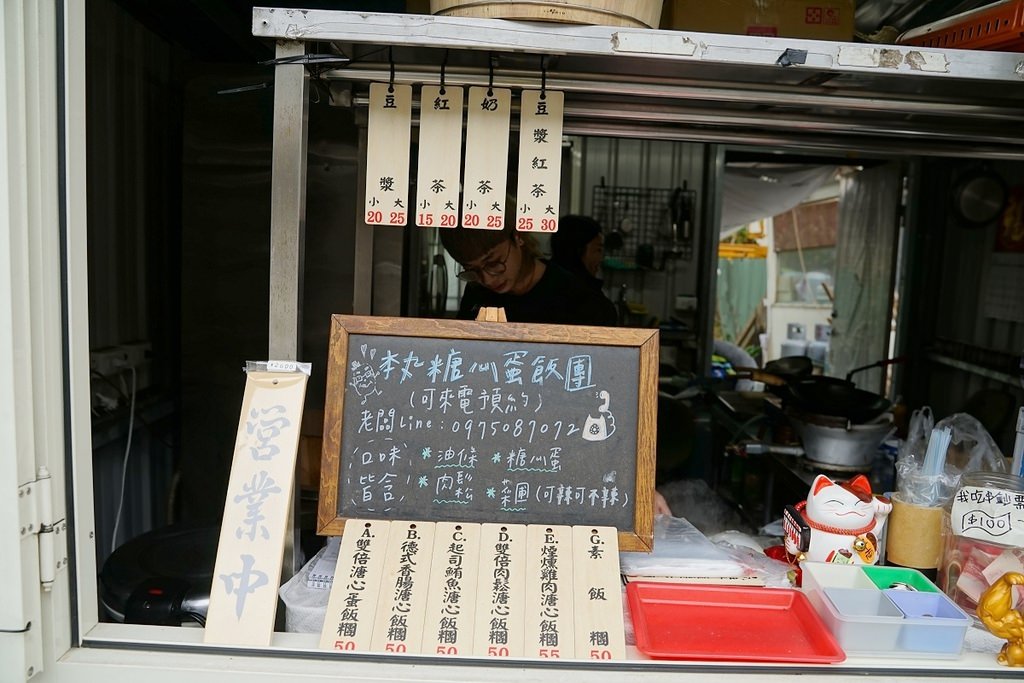 豆漿
小 大
20 25
紅茶
小 大
15 20
奶茶
小 大
20 25
豆漿紅茶
小 大
25 30
李丸糖心蛋飯團
(可來電預約)
老闆line:0975087072
口味 *油條 *糖心蛋
皆含 *肉鬆 *菜圃(可辣可不辣)
營業中
A.雙倍溏心蛋飯糰
50
B.德式香腸溏心飯糰
50
C.起司鮪魚溏心飯糰
50
D.雙倍肉鬆溏心飯糰
50
E.煙燻雞肉溏心飯糰
55
G.素飯糰
50
$100